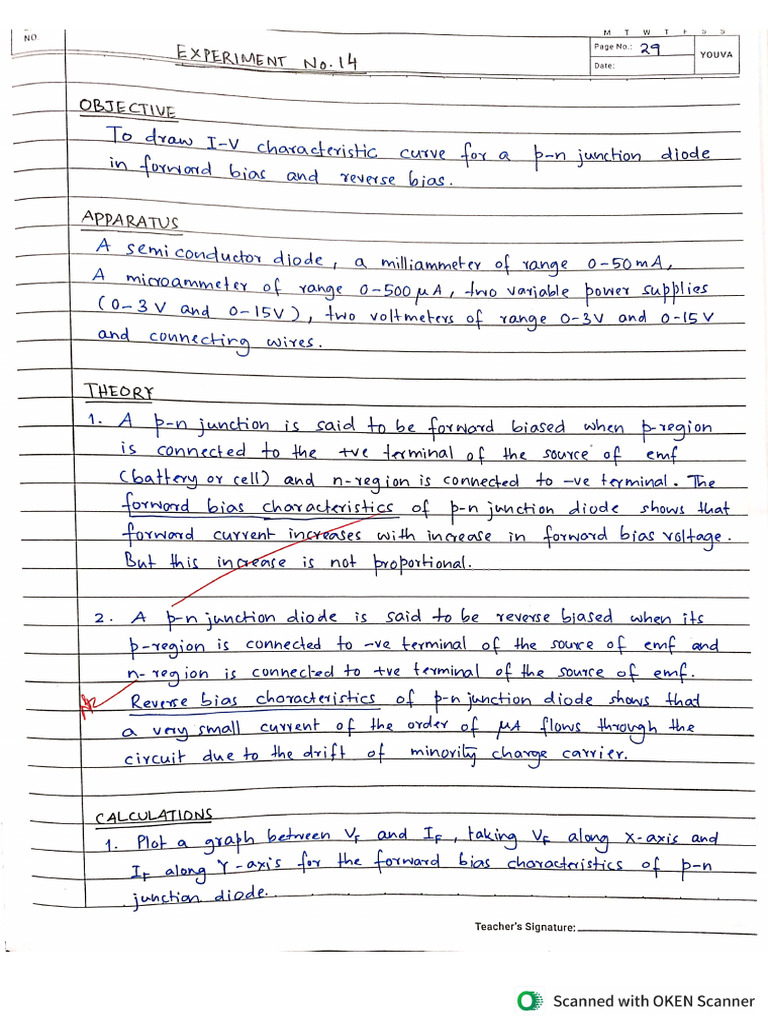 NO.
M T W T F S S
Page No.: 29
YOUVA
Date:
EXPERIMENT No. 14
OBJECTIVE
To draw I-V characteristic curve for a p-n junction diode
in forward bias and reverse bias.
APPARATUS
A semiconductor diode, a milliammeter of range 0-50mA,
A microammeter of range 0-500 μA, two variable power supplies
(0-3V and 0-15V), two voltmeters of range 0-3V and 0-15V
and connecting wires.
THEORY
1. A p-n junction is said to be forward biased when p-region
is connected to the +ve terminal of the source of emf
(battery or cell) and n-region is connected to -ve terminal. The
forward bias characteristics of p-n junction diode shows that
forward current increases with increase in forward bias voltage.
But this increase is not proportional.
2. A p-n junction diode is said to be reverse biased when its
p-region is connected to -ve terminal of the source of emf and
n-region is connected to +ve terminal of the source of emf.
Reverse bias characteristics of p-n junction diode shows that
a very small current of the order of μA flows through the
circuit due to the drift of minority charge carrier.
CALCULATIONS
1. Plot a graph between VF and IF, taking VF along X-axis and
IF along Y-axis for the forward bias characteristics of p-n
junction diode.
Teacher's Signature:
Scanned with OKEN Scanner